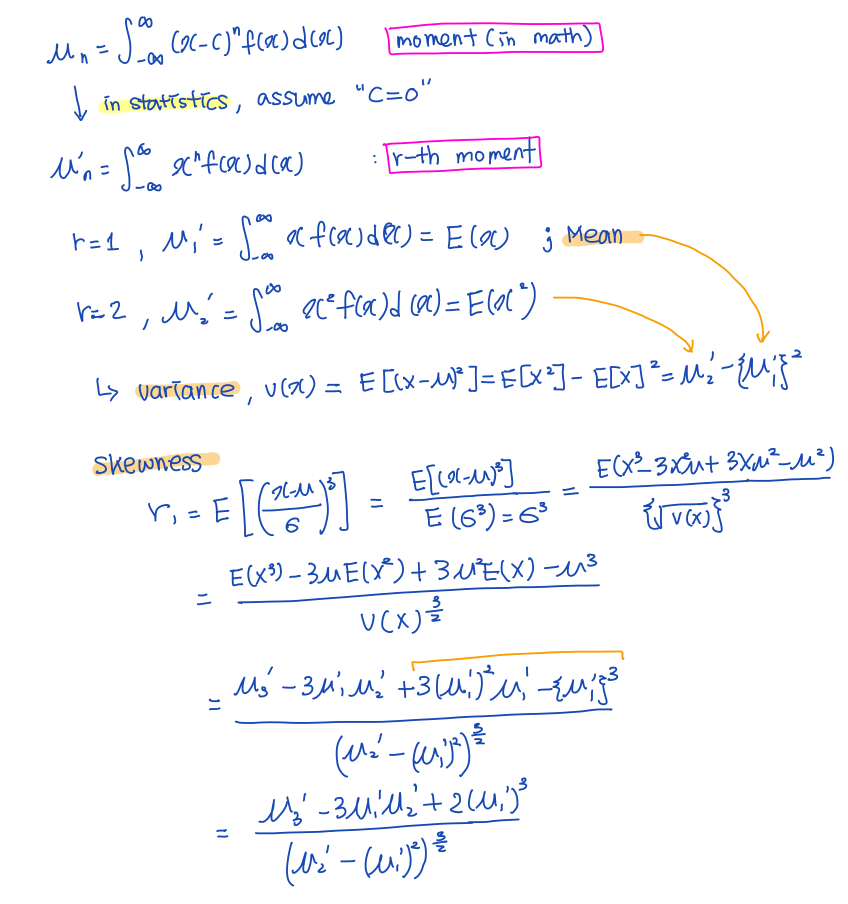 μₙ = ∫_{-∞}^{∞} (x-c)ⁿ f(x) d(x)   moment (in math)
↓ in statistics, assume "C=0"
μ'ₙ = ∫_{-∞}^{∞} xⁿ f(x) d(x)   : r-th moment
r=1 , μ₁' = ∫_{-∞}^{∞} x f(x) d(x) = E(x) ; Mean
r=2 , μ₂' = ∫_{-∞}^{∞} x² f(x) d(x) = E(x²)
↳ variance, v(x) = E[(x-μ)²] = E[x²] - E[x]² = μ₂' - {μ₁'}²
skewness
r₁ = E[((x-μ)/6)³] = E[(x-μ)³] / E(6³)=6³ = E(x³-3x²μ+3xμ²-μ²) / {√v(x)}³
= (E(x³) - 3μE(x²) + 3μ²E(x) - μ³) / V(x)^{3/2}
= (μ₃' - 3μ₁'μ₂' + 3(μ₁')²μ₁' - {μ₁'}³) / (μ₂' - (μ₁')²)^{3/2}
= (μ₃' - 3μ₁'μ₂' + 2(μ₁')³) / (μ₂' - (μ₁')²)^{3/2}